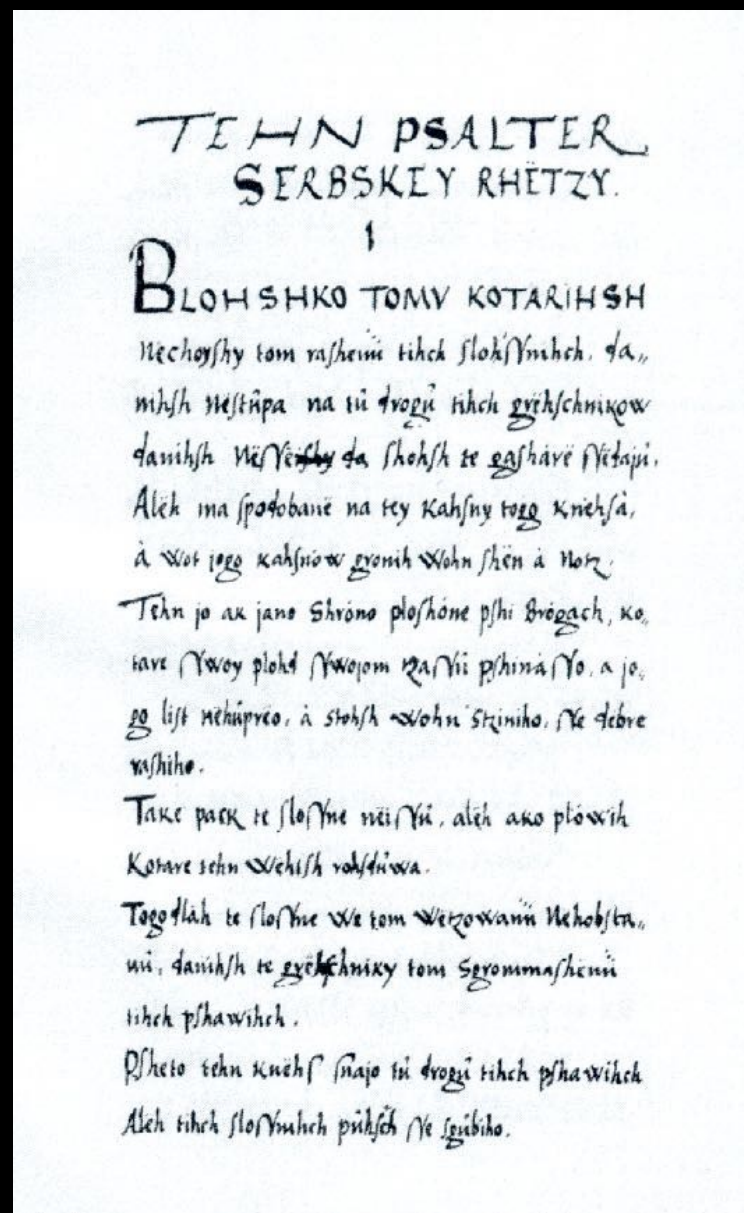 TEHN PSALTER
SERBSKEY RHËTZY.
1
BLOHSHKO TOMV KOTARIHSH
Nëchoyſhy tom raſhenü tihch ſloh∫∫nihch, da„
nihſh nëstûpa na tû drogû tihch grëhſchnikow
danihſh Në∫∫ë da ſhohſh te gaſharë ∫∫ëdajû.
Alëh ma ſpodobanë na tey Kahſny togo Knëhſà,
à wot jogo kahſnow gronih wohn ſhën à Notz.
Tehn jo ak jano Shróno ploſhóne pſhi Brógach, ko„
tare ∫∫woy plohd ∫∫wojom tza∫∫ü pſhinà∫∫o, a jo„
go liſt nëhûprëo, à stohſh wohn stziniho, ∫∫e debre
raſhiho.
Take pack te ſlo∫∫ne nëi∫∫û, alëh ako plówih
Kotare tehn Wehtſh rohſdûwa.
Togodlàh te ſlo∫∫ne we tom wëtzowanü Nehobſta„
nû, danihſh te grëhſchniky tom Sgrommaſhenü
tihch pſhawihch.
Pſheto tehn Knëhſ ſnajo tû drogû tihch pſhawihch
Alëh tihch ſlo∫∫nihch pûhſch ∫∫e ſgûbiho.